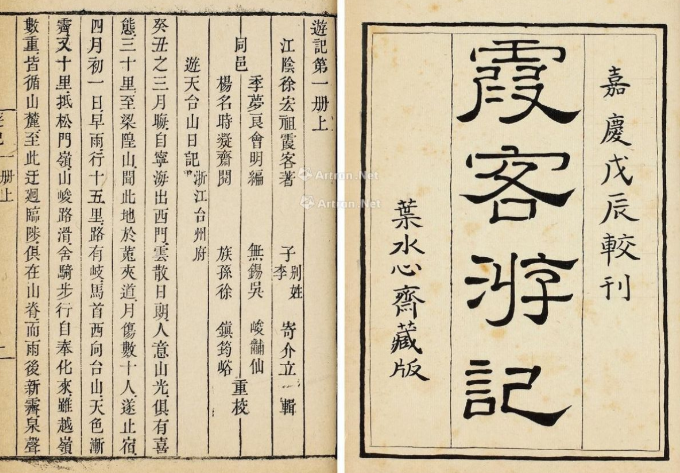 嘉慶戊辰較刊
霞客游記
葉水心齋藏版
遊記第一册上
江陰徐宏祖霞客著 子李別姓寄介立輯
季夢良會明編 無錫吳峻黼仙
同邑 重校
楊名時凝齋閱 族孫徐鎮筠峪
遊天台山日記 浙江台州府
癸丑之三月晦自寧海出西門雲散日朗人意山光俱有喜
態三十里至梁隍山聞此地於菟夾道月傷數十人遂止宿
四月初一日早雨行十五里路有岐馬首西向台山天色漸
霽又十里抵松門嶺山峻路滑舍騎步行自奉化來雖越嶺
數重皆循山麓至此迂迴臨陟俱在山脊而雨後新霽泉聲
Artron.Net
Artron.Net